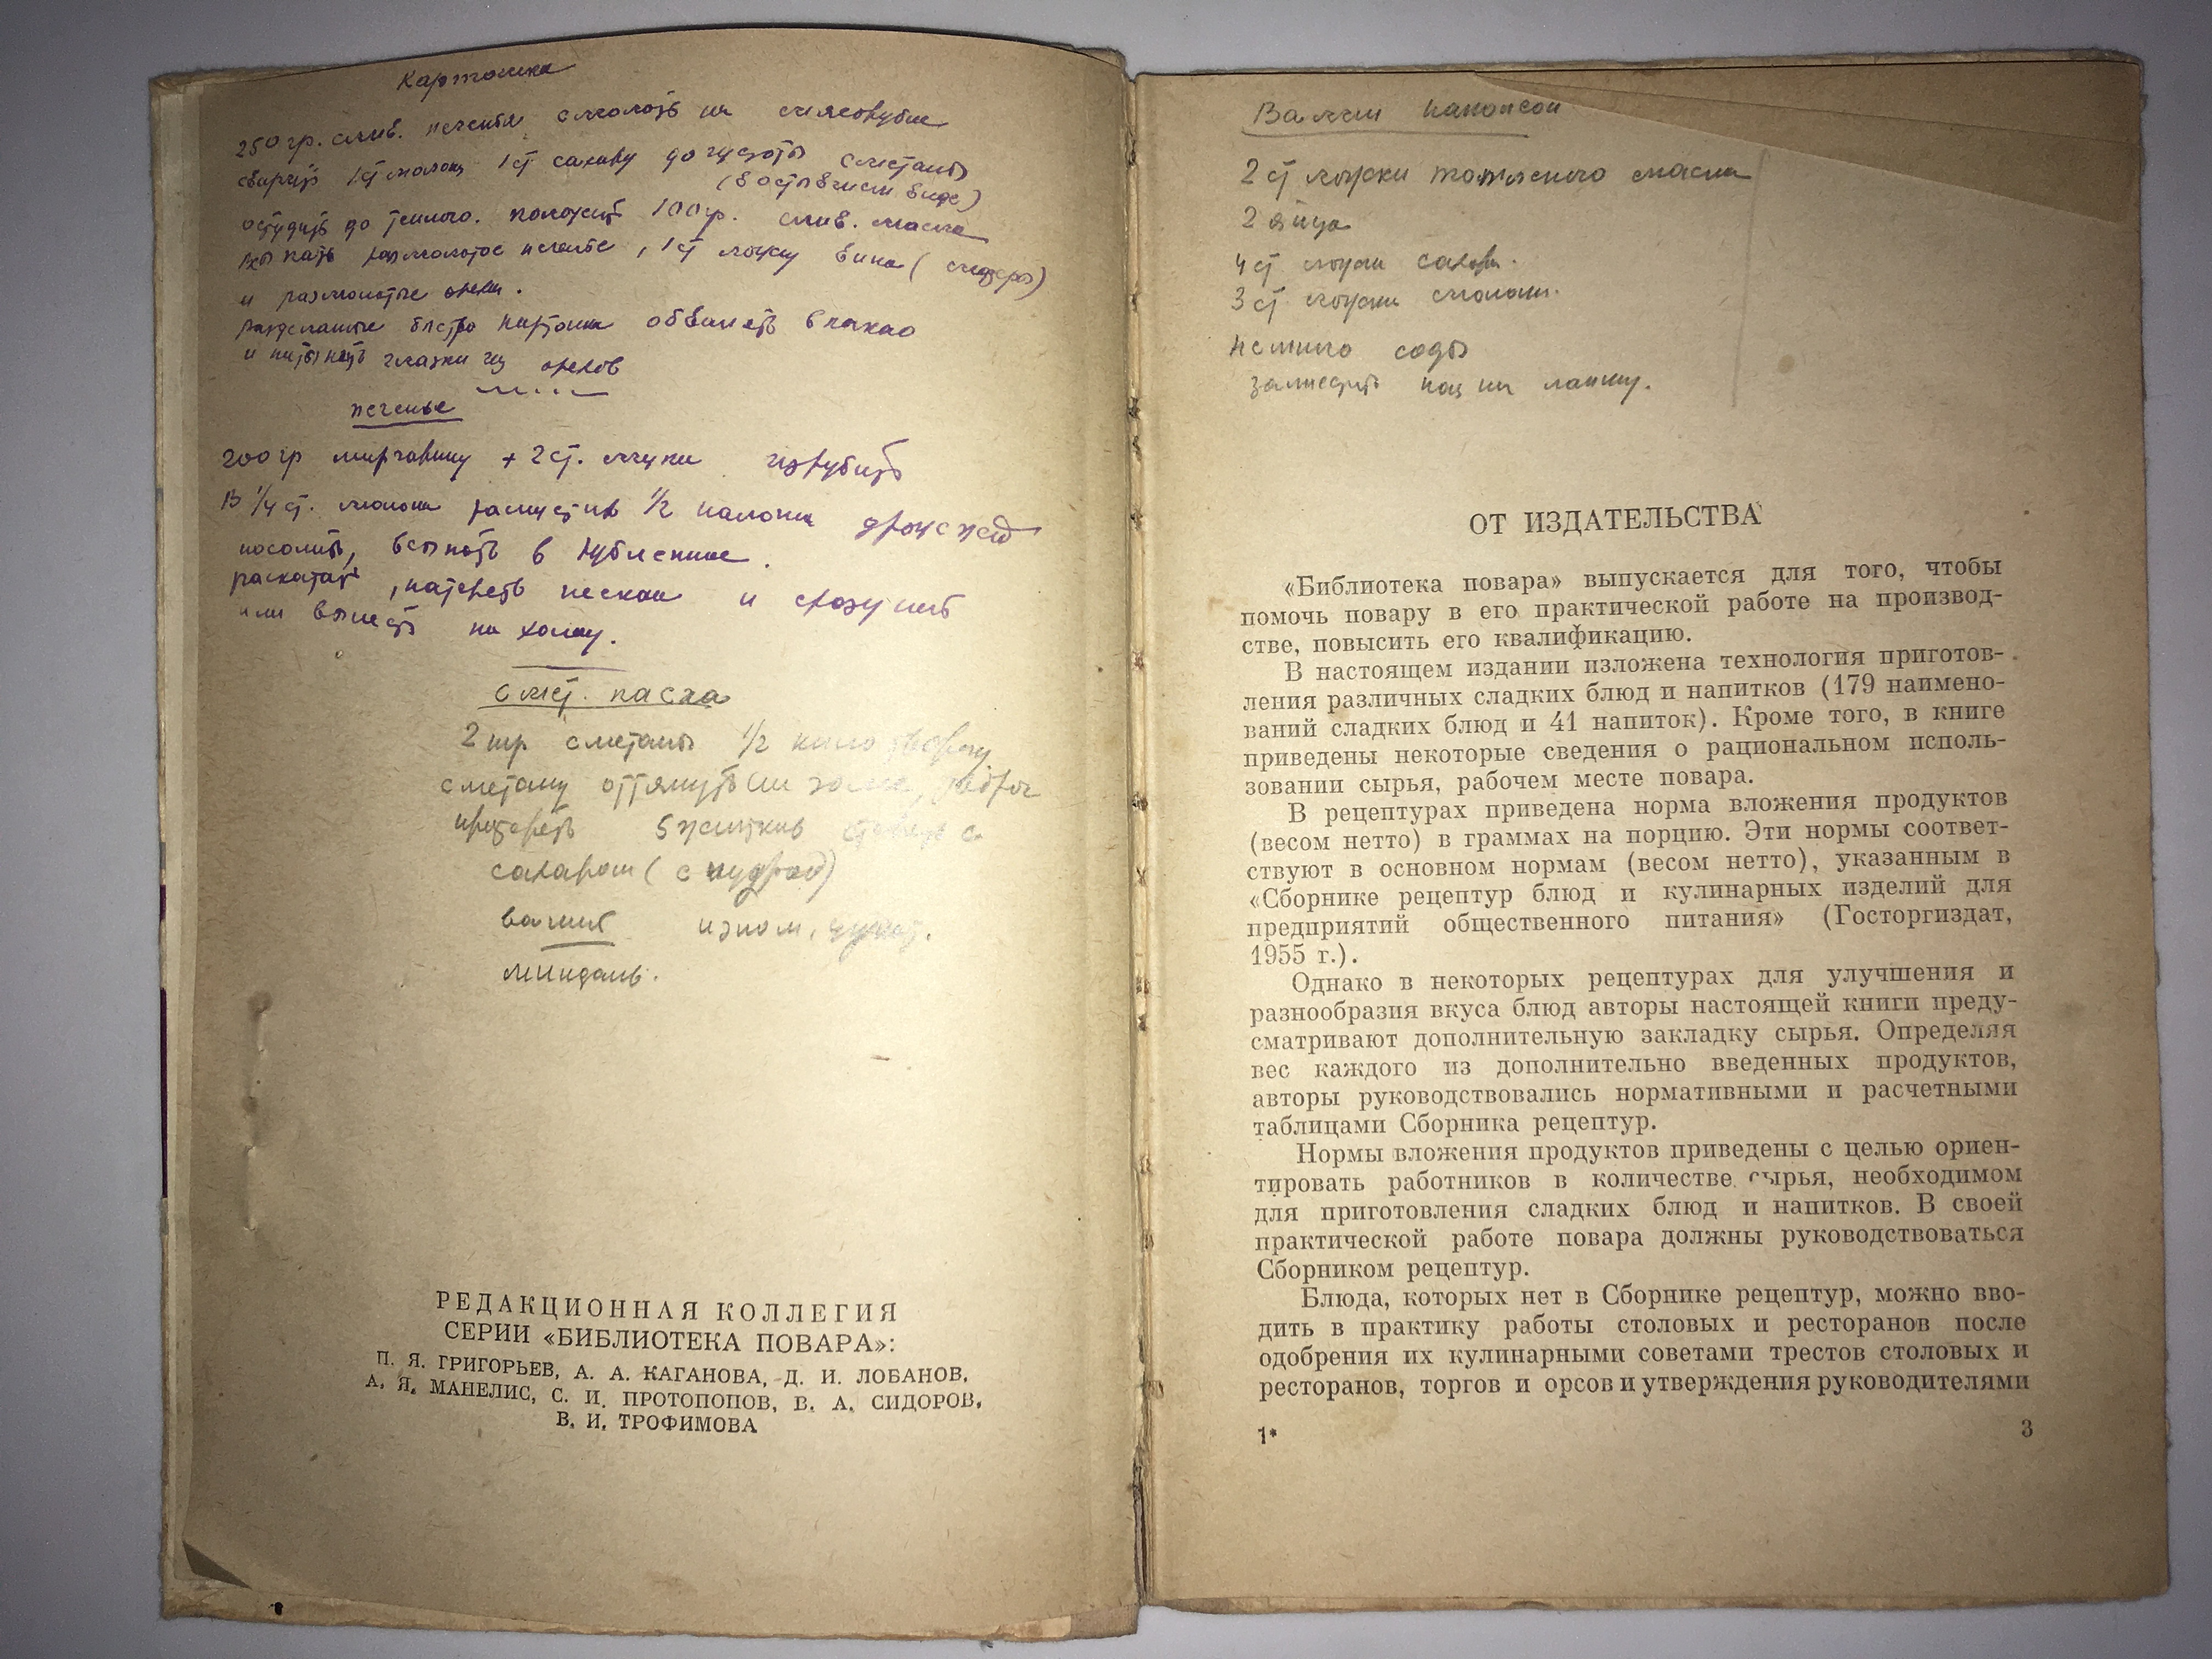 Картошка
250 гр. слив. печенья смолоть на мясорубке
сварить 1 ст молока 1 ст сахару до густоты сметаны
(в остывшем виде)
остудить до теплого. положить 100 гр. слив. масла
всыпать размолотое печенье, 1 ст ложку вина (
и размолотые орехи.
быстро картошки обвалять в какао
и глазки из орехов
печенье
200 гр маргарину + 2 ст. муки изрубить
В 1/4 ст. молока распустив 1/2 палочки дрожжей
посолить, всыпать в рубленные.
раскатать, натереть песком и сразу печь
или вынести на холод.
смет. пасха
2 литр сметаны 1/2 кило творогу
сметану оттянуть
протереть 5 желтков с
сахаром (с пудрой)
ваниль изюм, цукат.
миндаль.
РЕДАКЦИОННАЯ КОЛЛЕГИЯ
СЕРИИ «БИБЛИОТЕКА ПОВАРА»:
П. Я. ГРИГОРЬЕВ, А. А. КАГАНОВА, Д. И. ЛОБАНОВ,
А. Я. МАНЕЛИС, С. И. ПРОТОПОПОВ, В. А. СИДОРОВ,
В. И. ТРОФИМОВА
2 ст ложки топленого масла
2 яйца
4 ст ложки сахара.
3 ст ложки молока.
немного соды
замесить как на лапшу.
ОТ ИЗДАТЕЛЬСТВА
«Библиотека повара» выпускается для того, чтобы
помочь повару в его практической работе на производ-
стве, повысить его квалификацию.
В настоящем издании изложена технология приготов-
ления различных сладких блюд и напитков (179 наимено-
ваний сладких блюд и 41 напиток). Кроме того, в книге
приведены некоторые сведения о рациональном исполь-
зовании сырья, рабочем месте повара.
В рецептурах приведена норма вложения продуктов
(весом нетто) в граммах на порцию. Эти нормы соответ-
ствуют в основном нормам (весом нетто), указанным в
«Сборнике рецептур блюд и кулинарных изделий для
предприятий общественного питания» (Госторгиздат,
1955 г.).
Однако в некоторых рецептурах для улучшения и
разнообразия вкуса блюд авторы настоящей книги преду-
сматривают дополнительную закладку сырья. Определяя
вес каждого из дополнительно введенных продуктов,
авторы руководствовались нормативными и расчетными
таблицами Сборника рецептур.
Нормы вложения продуктов приведены с целью ориен-
тировать работников в количестве сырья, необходимом
для приготовления сладких блюд и напитков. В своей
практической работе повара должны руководствоваться
Сборником рецептур.
Блюда, которых нет в Сборнике рецептур, можно вво-
дить в практику работы столовых и ресторанов после
одобрения их кулинарными советами трестов столовых и
ресторанов, торгов и орсов и утверждения руководителями
1*
3